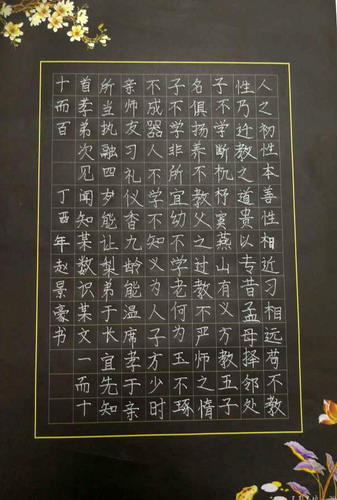 人之初性本善性相近习相远苟不教
性乃迁教之道贵以专昔孟母择邻处
子不学断机杼窦燕山有义方教五子
名俱扬养不教父之过教不严师之惰
子不学非所宜幼不学老何为玉不琢
不成器人不学不知义为人子方少时
亲师友习礼仪香九龄能温席孝于亲
所当执融四岁能让梨弟于长宜先知
首孝弟次见闻知某数识某文一而十
十而百 丁酉年赵景豪书